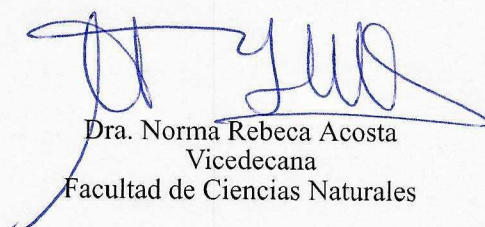 Dra. Norma Rebeca Acosta
Vicedecana
Facultad de Ciencias Naturales